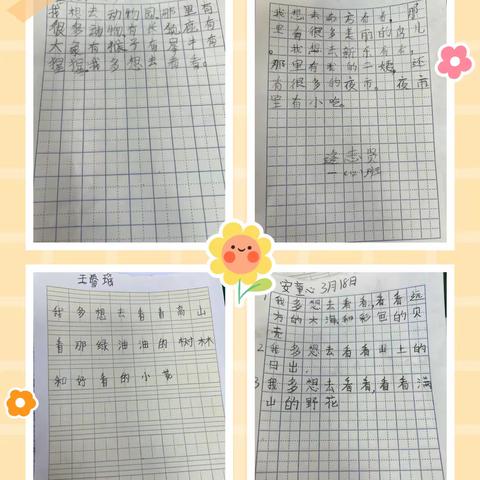 我想去动物园,那里有
很多动物,有长颈鹿有
大象有猴子有犀牛有
猩猩,我多想去看看。
我想去南方看看,那
里有很多美丽的鸟儿
。我想去新疆看看,
那里有去的二姨,还
有很多的夜市。夜市
里有小吃。
志贤
一(2)班
王晋瑶
我多想去看看高山
看那绿油油的树林
和好看的小花
安童心 3月18日
1 我多想去看看,看看远
方的大海和彩色的贝
壳
2 我多想去看看山上的
日出.
3 我多想去看看,看看满
山的野花